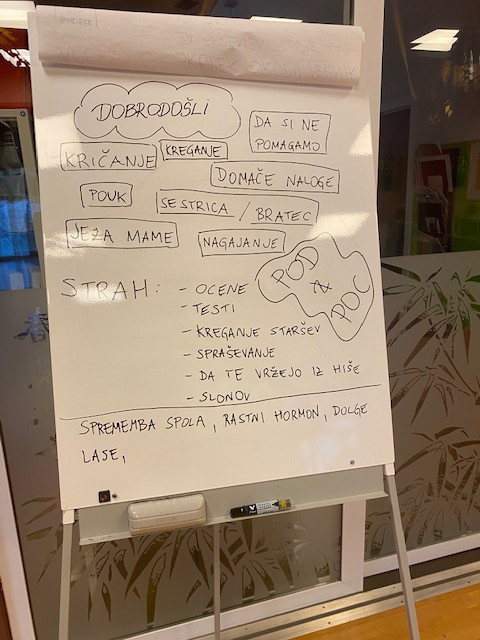 DOBRODOŠLI
DA SI NE
POMAGAMO
KRIČANJE
KREGANJE
DOMAČE NALOGE
POUK
SESTRICA / BRATEC
JEZA MAME
NAGAJANJE
STRAH:
- OCENE
- TESTI
- KREGANJE STARŠEV
- SPRAŠEVANJE
- DA TE VRŽEJO IZ HIŠE
- SLONOV
POD
POC
SPREMEMBA SPOLA, RASTNI HORMON, DOLGE
LASE,